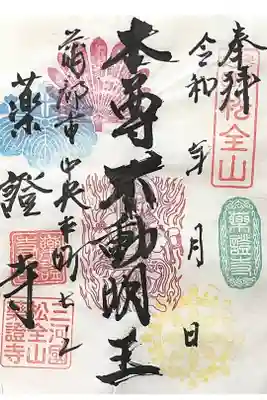 奉拝
令和 年 月 日
松全山
藥證寺
本尊不動明王
蒲郡市中央本町七ノ
藥證寺
藥證寺
三河國
松全山
藥證寺